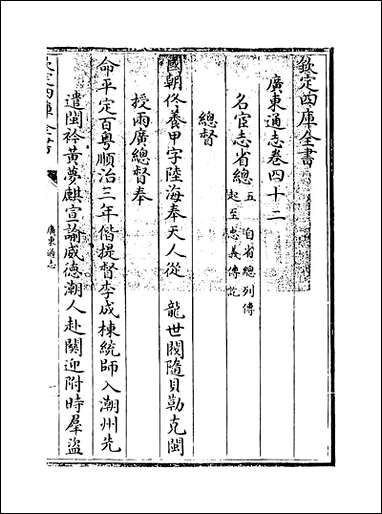 欽定四庫全書
廣東通志卷四十二
名宦志省總五 自省總列傳起至忠義傳訖
總督
國朝佟養甲字陸海奉天人從 龍世閥隨貝勒克閩
授兩廣總督奉
命平定百粤順治三年偕提督李成棟統師入潮州先
遣閩衿黄夢麒宣諭威德潮人赴闗迎附時羣盜
欽定四庫全書
廣東通志
一